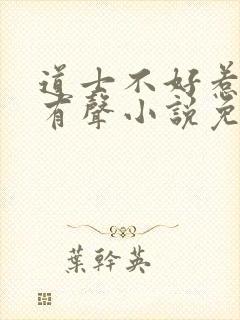 道士不好惹
有聲小說免
葉幹英